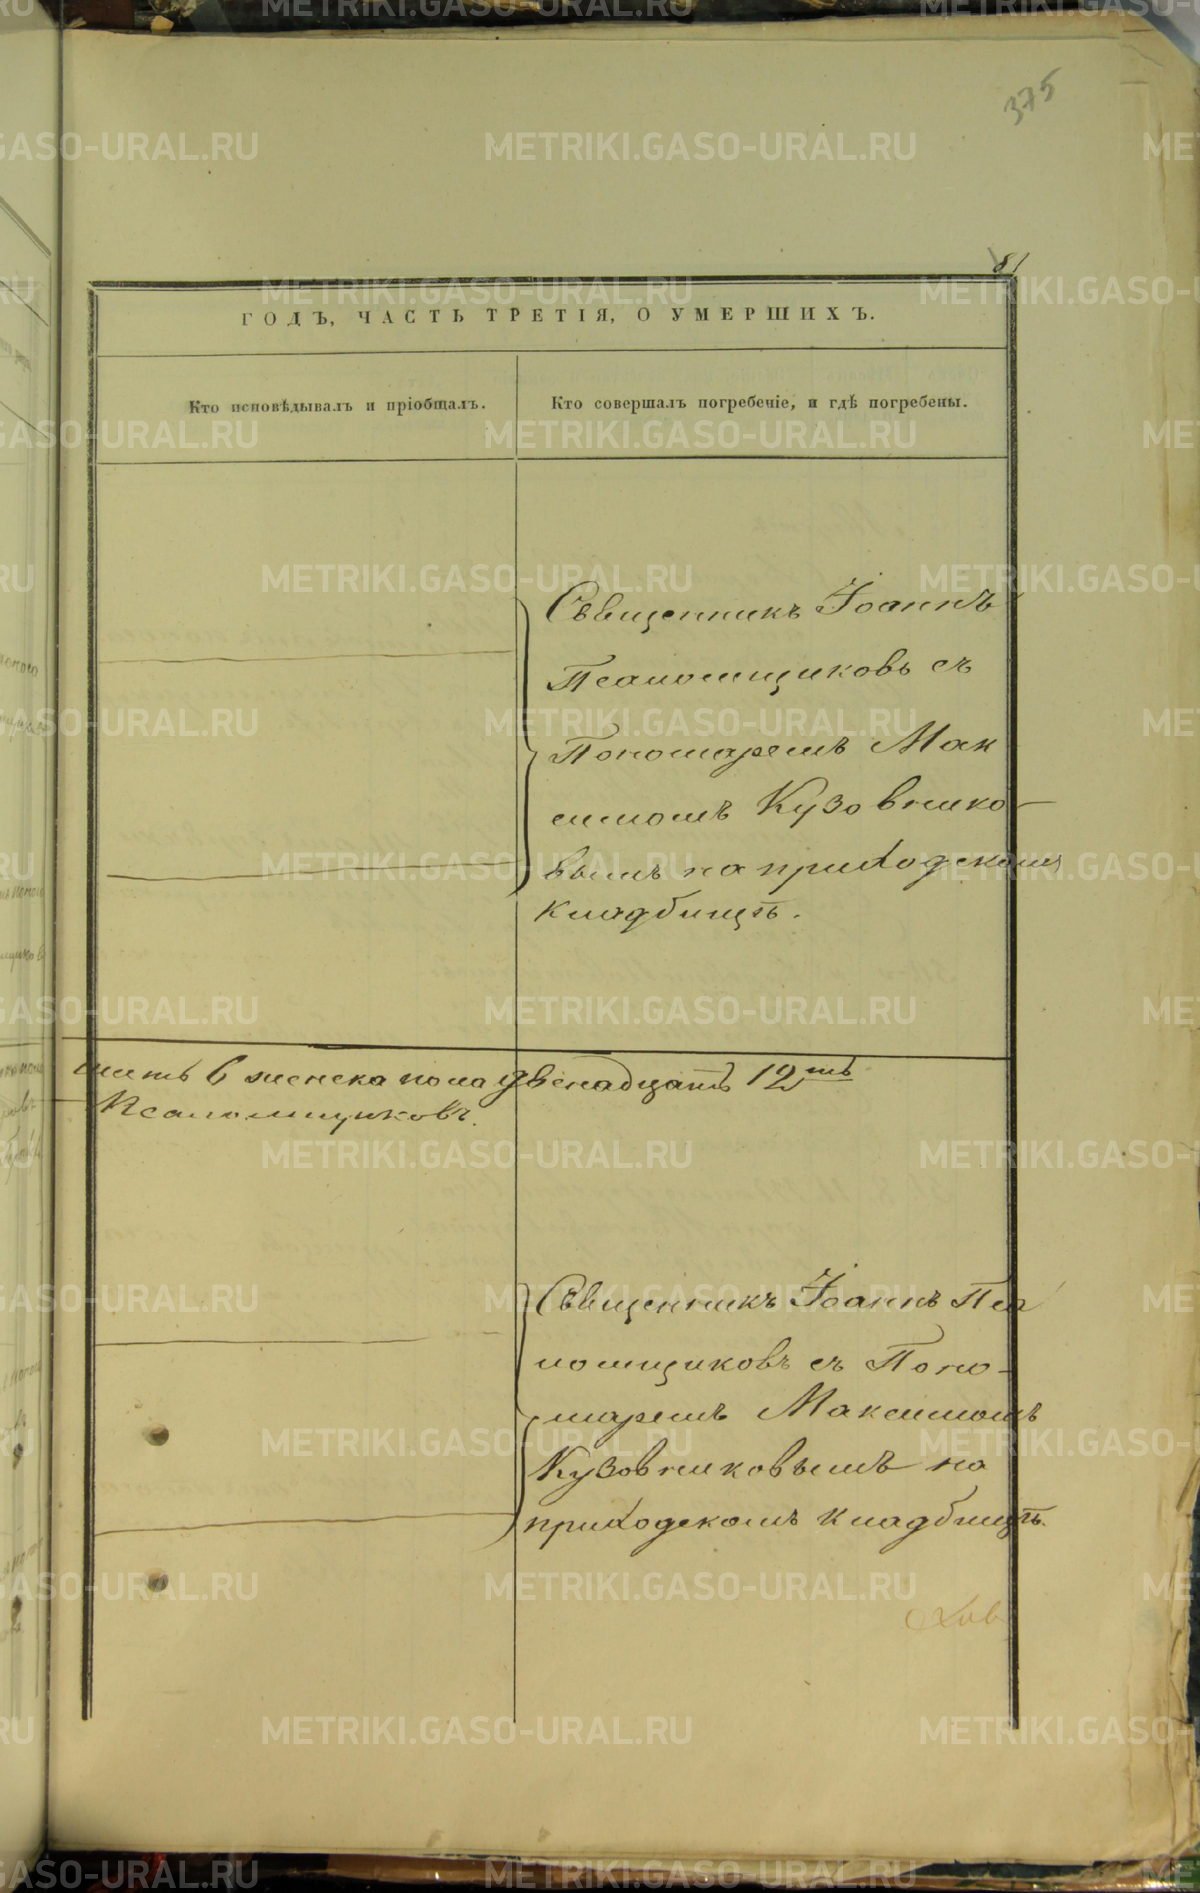 375
81
ГОДЪ, ЧАСТЬ ТРЕТІЯ, О УМЕРШИХЪ.
Кто исповѣдывалъ и пріобщалъ.
Кто совершалъ погребеніе, и гдѣ погребены.
Священникъ Іоаннъ
Псаломщиковъ съ
Пономаремъ Мак
симомъ Кузовнико-
вымъ на приходскомъ
кладбищѣ.
шесть 6 женска пола двенадцать 12ть
Псаломщиковъ.
Священникъ Іоаннъ Пса
ломщиковъ съ Поно-
маремъ Максимомъ
Кузовниковымъ на
приходскомъ кладбищѣ.
METRIKI.GASO-URAL.RU